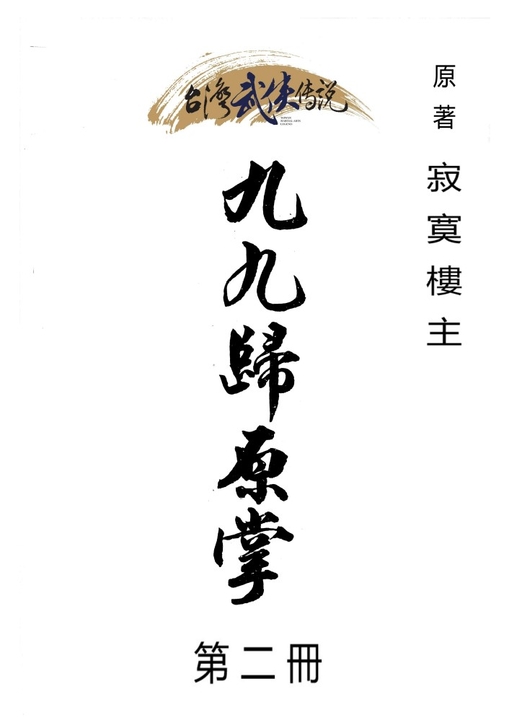 台灣武俠傳說
原著 寂寞樓主
九九歸原掌
第二冊